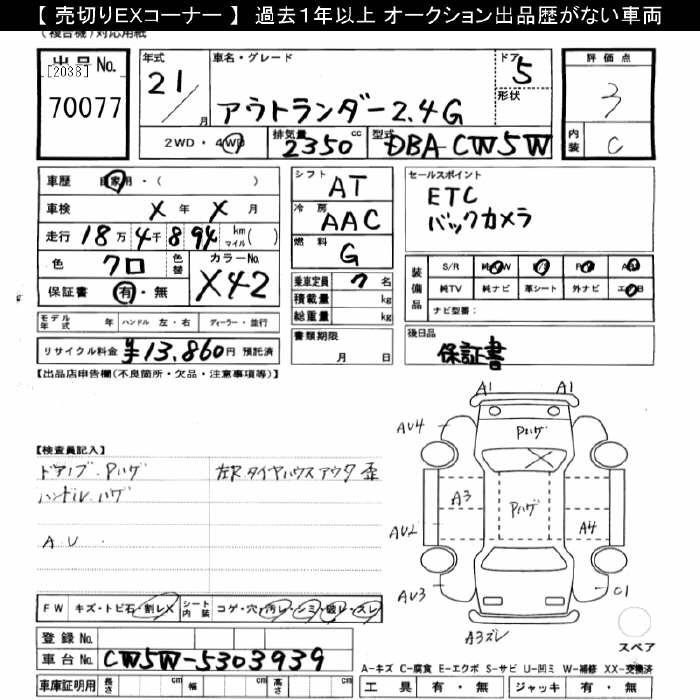 【 売切りEXコーナー 】 過去１年以上 オークション出品歴がない車両
(複合機)対応用紙
出品No.
[2038]
70077
年式
21/
月
車名・グレード
アウトランダー2.4G
ドア
5
形状
2WD・4WD
排気量
2350 cc
型式
DBA-CW5W
評価点
3
内装
C
車歴 自家用・( )
車検 X 年 X 月
走行 18万 4千 894 km マイル( )
色 クロ 色替 カラーNo. X42
保証書 有・無
シフト AT
冷房 AAC
燃料 G
乗車定員 7 名
積載量 kg
総重量 kg
書類期限
月 日
セールスポイント
ETC
バックカメラ
装備品
S/R 純AW P/S P/W A/B
純TV 純ナビ 革シート 外ナビ エアB
ナビ型番:
モデル年式 年 ハンドル 左・右 ディーラー・並行
リサイクル料金 ¥13,860円 預託済
後日品
保証書
【出品店申告欄(不良箇所・欠品・注意事項等)】
【検査員記入】
ドアノブ.Pハゲ
ハンドル.ハゲ
AU.
左R タイヤハウスアウタ 歪
A1 A1
AU4
Pハゲ
X
A3
Pハゲ
AU2
A4
AU3
C1
A3ズレ
スペア
FW キズ・トビ石・割レX シート内装 コゲ・穴・汚レ・シミ・破レ・スレ
登録No.
車台No. CW5W-5303939
車庫証明用 長さ cm 幅 cm 高さ cm
A-キズ C-腐食 E-エクボ S-サビ U-凹ミ W-補修 XX-交換済
工具 有・無 ジャッキ 有・無